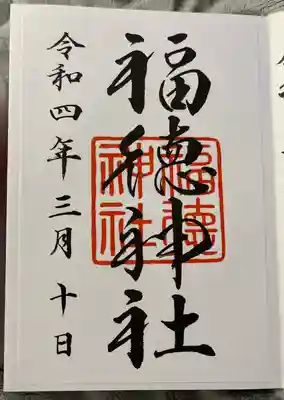 福徳神社
福徳
神社
令和四年三月十日